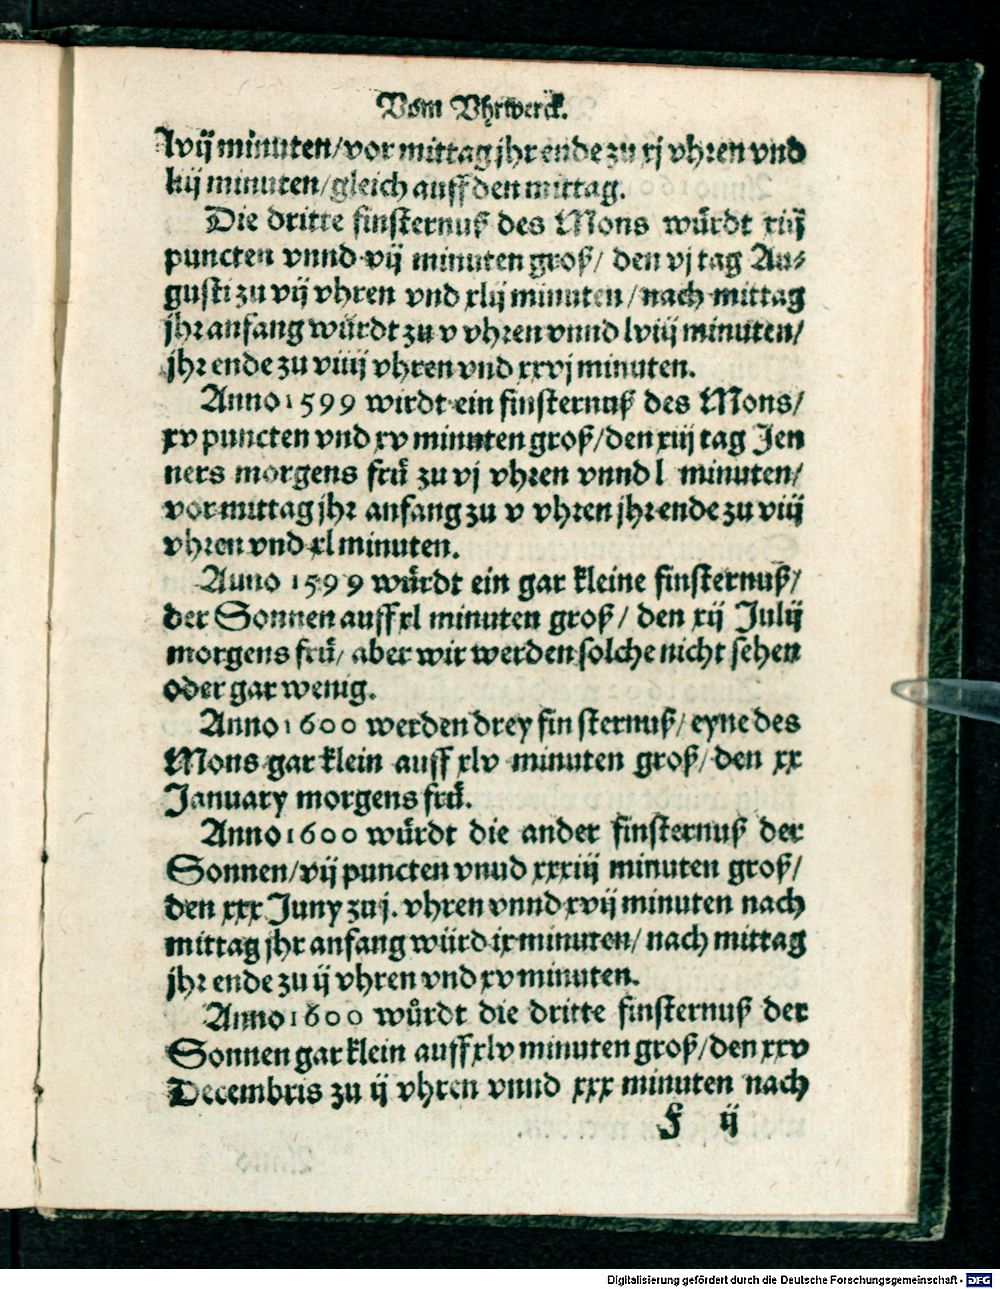 Vom Vhrwerck.
lvij minuten/vor mittag jhr ende zu xj vhren vnd
liij minuten/gleich auff den mittag.
Die dritte finsternuß des Mons würdt xiij
puncten vnnd vij minuten groß/ den vj tag Au⸗
gusti zu vij vhren vnd xlij minuten/nach mittag
jhr anfang würdt zu v vhren vnnd lviij minuten/
jhr ende zu viiij vhren vnd xxvj minuten.
Anno 1599 wirdt ein finsternuß des Mons/
xv puncten vnd xv minuten groß/den xiij tag Jen
ners morgens frü zu vj vhren vnnd l minuten/
vor mittag jhr anfang zu v vhren jhr ende zu viij
vhren vnd xl minuten.
Auno 1599 würdt ein gar kleine finsternuß/
der Sonnen auff xl minuten groß/ den xij Julij
morgens frü/ aber wir werden solche nicht sehen
oder gar wenig.
Anno 1600 werden drey finsternuß/ eyne des
Mons gar klein auff xlv minuten groß/ den xx
January morgens frü.
Anno 1600 würdt die ander finsternuß der
Sonnen/vij puncten vnud xxxiij minuten groß/
den xxx Juny zu j. vhren vnnd xvij minuten nach
mittag jhr anfang würd ix minuten/ nach mittag
jhr ende zu ij vhren vnd xv minuten.
Anno 1600 wůrdt die dritte finsternuß der
Sonnen gar klein auff xlv minuten groß/den xxv
Decembris zu ij vhren vnnd xxx minuten nach
F ij
Digitalisierung gefördert durch die Deutsche Forschungsgemeinschaft - DFG